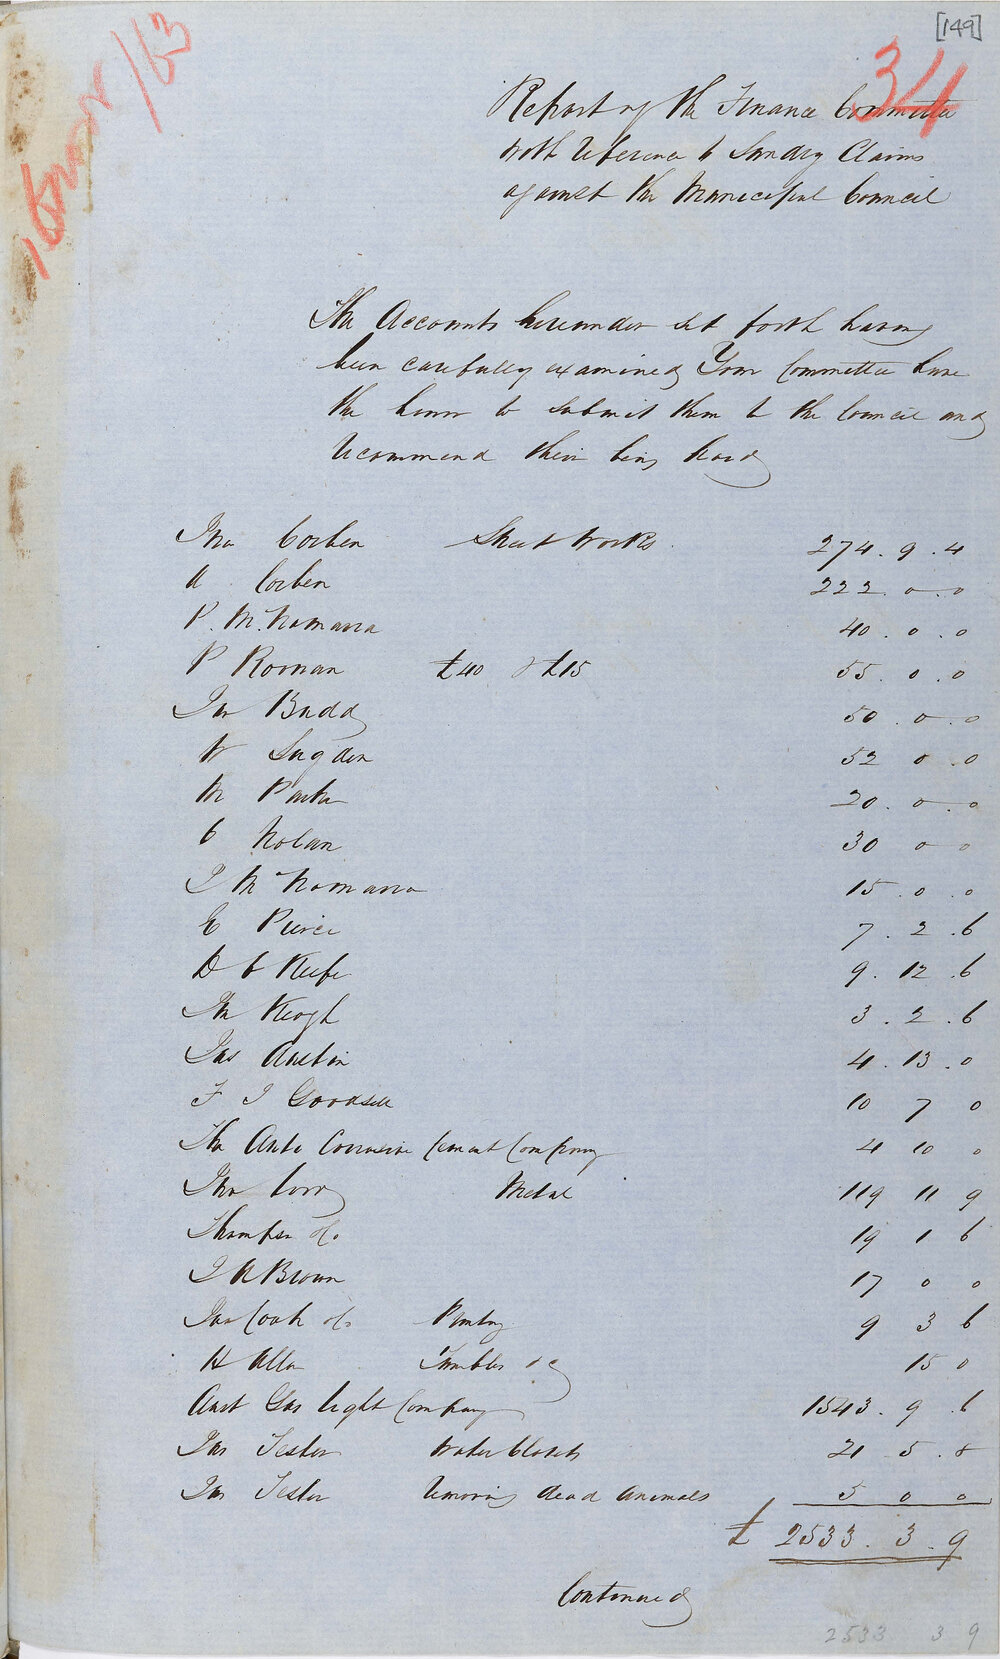 [149]
34
16 Mar/63
Report of the Finance Committee
with reference to Sundry Claims
against the Municipal Council
The Accounts hereunder set forth having
been carefully examined Your Committee have
the honor to submit them to the Council and
recommend their being paid
Jno Corben Street Works 274 . 9 . 4
A Corben 222 . 0 . 0
P. McNamara 40 . 0 . 0
P Roonan £40 & £15 55 . 0 . 0
Jas Budd 50 . 0 . 0
W Sugden 52 0 . 0
M Parker 20 . 0 . 0
C Nolan 30 0 0
J McNamara 15 . 0 . 0
E Pierce 7 . 2 . 6
D O Keefe 9 . 12 . 6
Jno Keogh 3 . 2 . 6
Jas Austin 4 . 13 . 0
F J Goodsell 10 7 0
The Anti Corrosive Cement Company 4 10 0
Jno Metal 119 11 9
Thompson & Co 19 1 6
J A Brown 17 0 0
Jas Cook & Co 9 3 6
H Allen Tumblers &c 15 0
Aust Gas Light Company 1543 . 9 . 6
Jas Tester Water Closets 21 5 . 8
Jas Tester Removing dead animals 5 0 0
£ 2533 . 3 . 9
Continued
2533 3 9